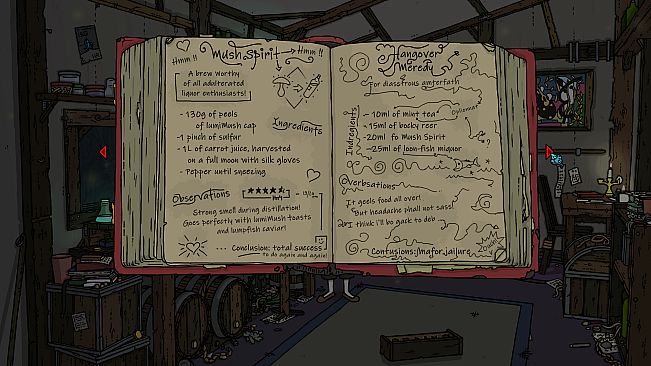 Mush Spirit → Hmm !!
Hmm !!
A brew worthy
of all adulterated
liquor enthusiasts!
Ingredients
- 130g of peels
of lumiMush cap
- 1 pinch of sulfur
- 1L of carrot juice, harvested
on a full moon with silk gloves
- Pepper until sneezing
Observations
Strong smell during distillation!
Goes perfectly with lumiMush toasts
and lumpfish caviar!
... Conclusion: total success
to do again and again!
Hangover
Meredy
For diasetrous amferfath
Indregients
- 10ml of mint tea
- 15ml of bocky reer
- 20ml fo Mush Spirit
- 25ml of loon-fish miquor
Overbsations
It geels food all over!
But headache phall not sass!
think i'll be gack to deb
Contusions: mafor jailure